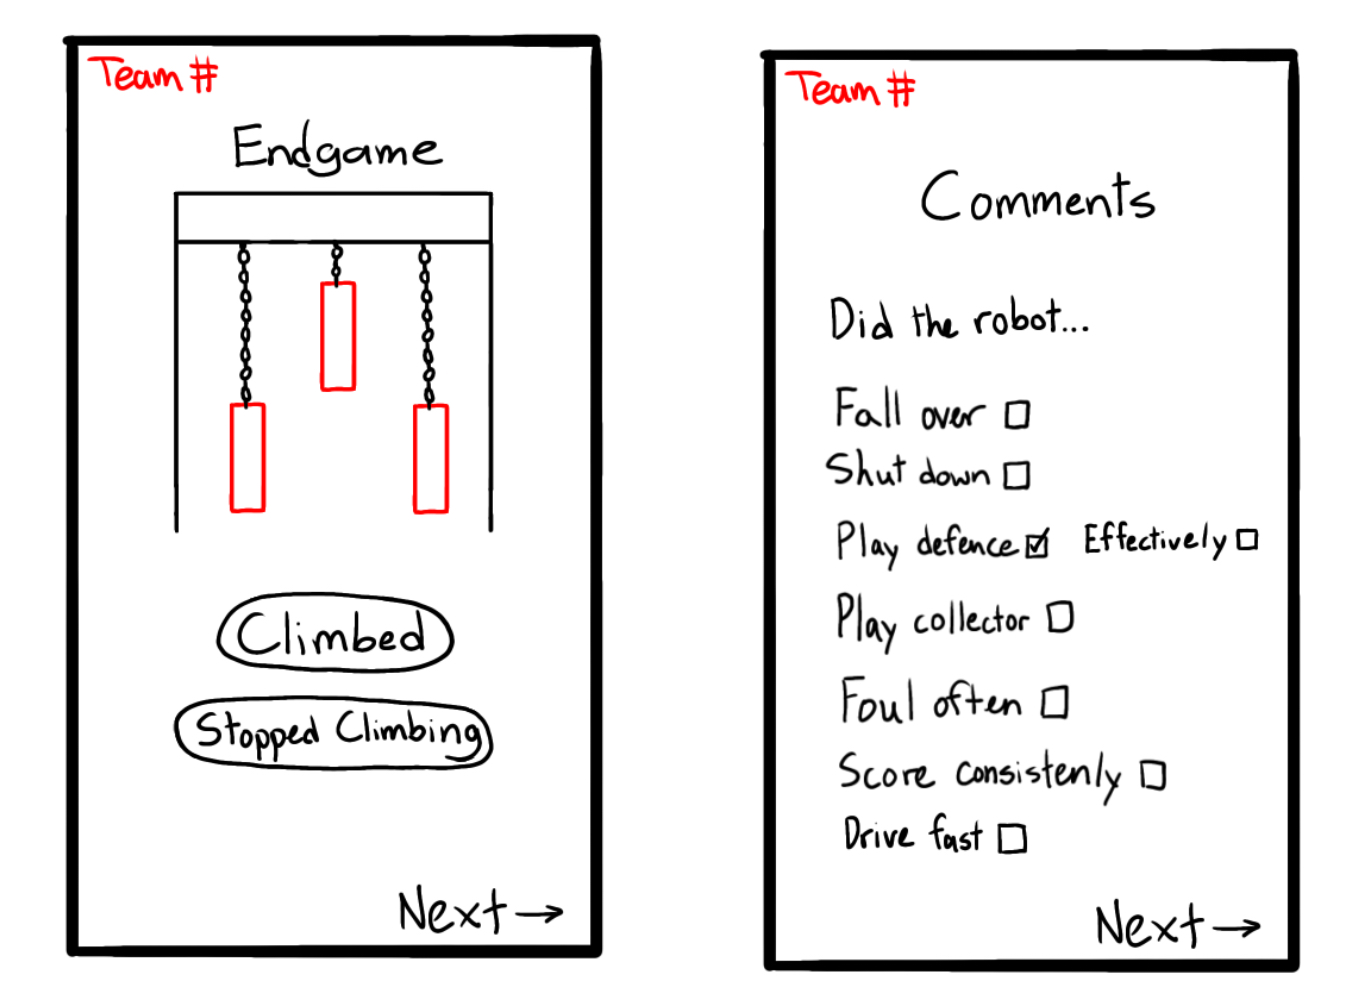 Team #
Endgame
Climbed
Stopped Climbing
Next →
Team #
Comments
Did the robot...
Fall over
Shut down
Play defence Effectively
Play collector
Foul often
Score consistenly
Drive fast
Next →